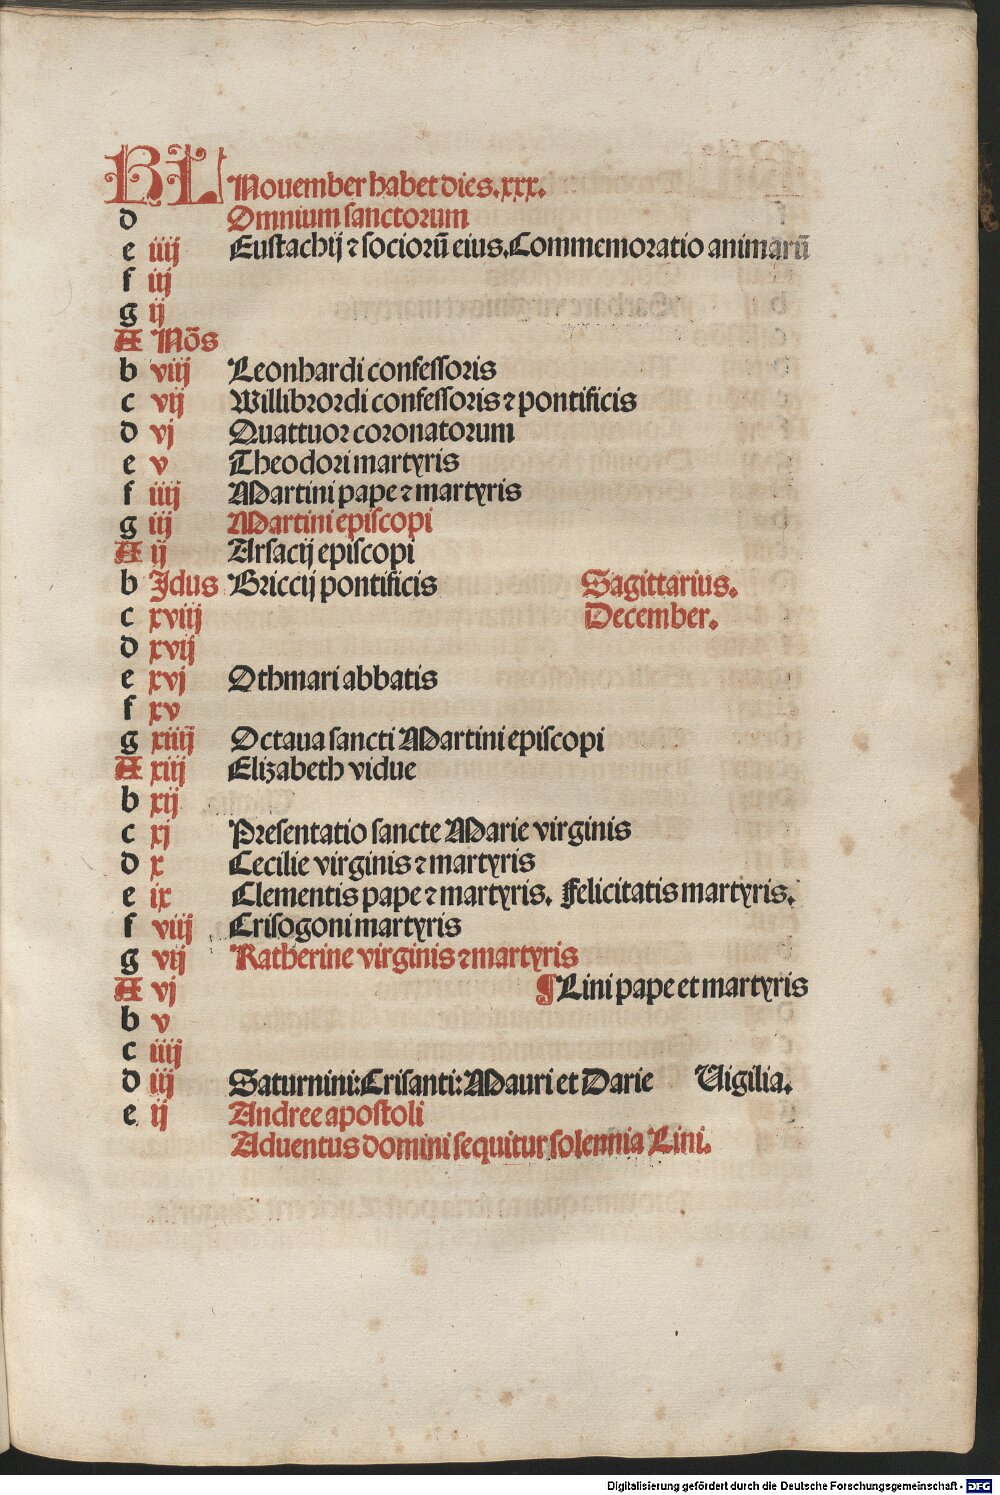 KL Nouember habet dies.xxx.
d Omnium sanctorum
e iiij Eustachij ⁊ sociorū eius. Commemoratio animarū
f iij
g ij
A Nōs
b viij Leonhardi confessoris
c vij Willibrordi confessoris ⁊ pontificis
d vj Quattuor coronatorum
e v Theodori martyris
f iiij Martini pape ⁊ martyris
g iij Martini episcopi
A ij Arsacij episcopi
b Jdus Briccij pontificis Sagittarius.
c xviij December.
d xvij
e xvj Othmari abbatis
f xv
g xiiij Octaua sancti Martini episcopi
A xiij Elizabeth vidue
b xij
c xj Presentatio sancte Marie virginis
d x Cecilie virginis ⁊ martyris
e ix Clementis pape ⁊ martyris. Felicitatis martyris.
f viij Crisogoni martyris
g vij Katherine virginis ⁊ martyris
A vj ¶ Lini pape et martyris
b v
c iiij
d iij Saturnini: Crisanti: Mauri et Darie Uigilia.
e ij Andree apostoli
Aduentus domini sequitur solennia Lini.
Digitalisierung gefördert durch die Deutsche Forschungsgemeinschaft - DFG